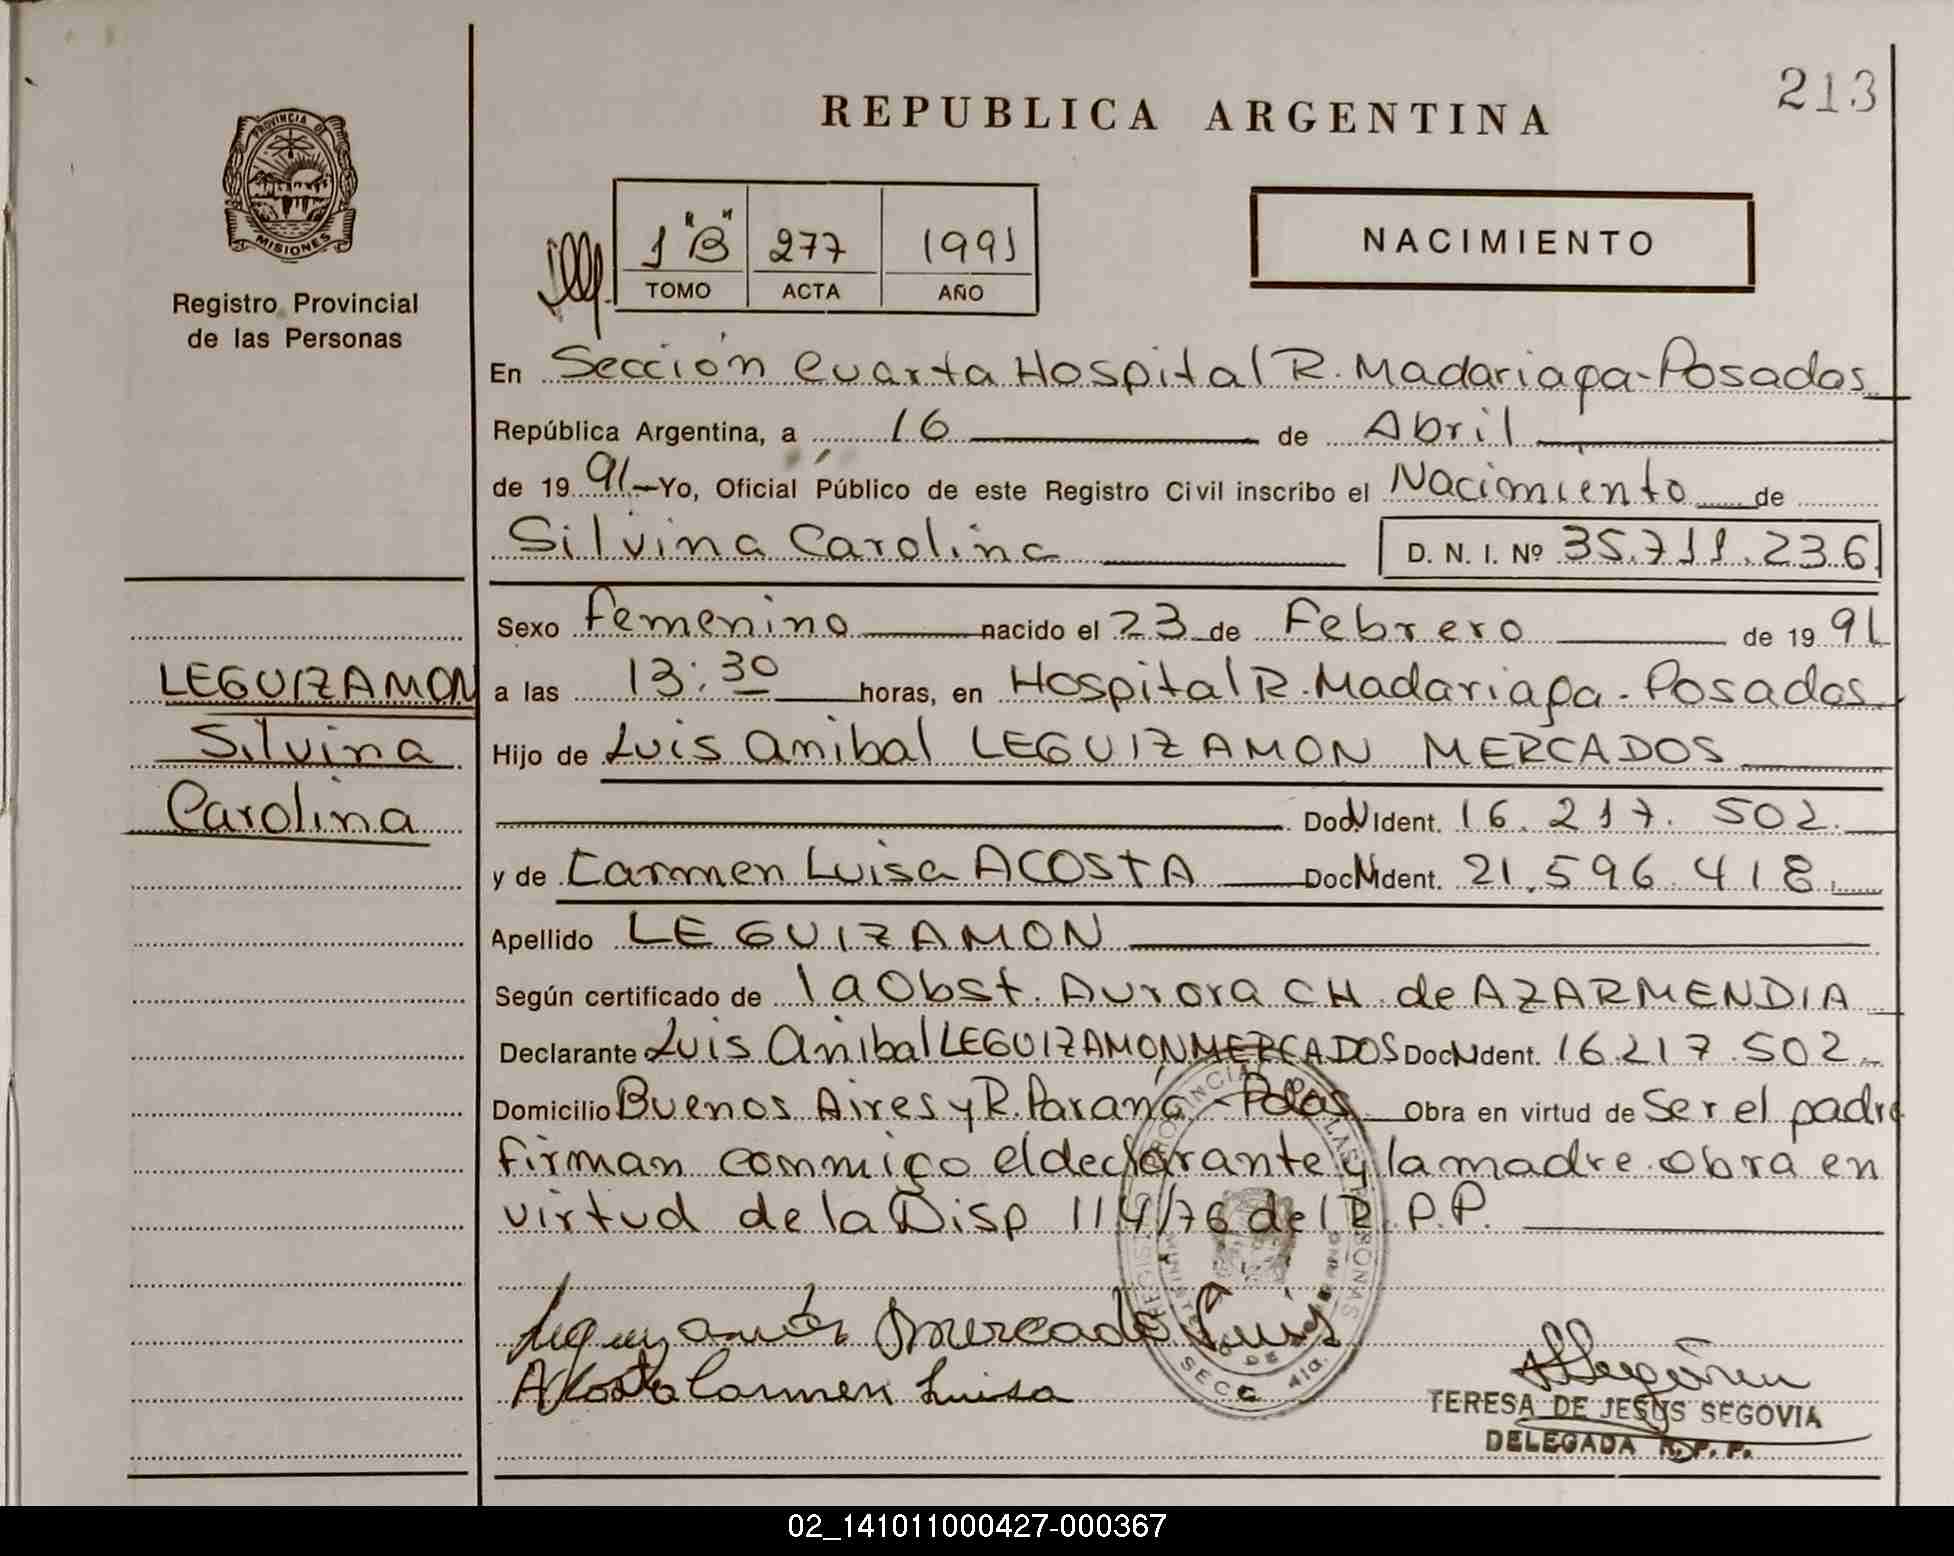 213
REPUBLICA ARGENTINA
PROVINCIA DE
MISIONES
Registro Provincial
de las Personas
1 "B" 277 1991
TOMO ACTA AÑO
NACIMIENTO
En Sección Cuarta Hospital R. Madariaga - Posadas
República Argentina, a 16 de Abril
de 19 91 Yo, Oficial Público de este Registro Civil inscribo el Nacimiento de
Silvina Carolina D. N. I. Nº 35.711.236
Sexo Femenino nacido el 23 de Febrero de 19 91
LEGUIZAMON
Silvina
Carolina
a las 13:30 horas, en Hospital R. Madariaga - Posadas
Hijo de Luis Anibal LEGUIZAMON MERCADOS
Doc N Ident. 16.217.502
y de Carmen Luisa ACOSTA Doc N Ident. 21.596.418
Apellido LEGUIZAMON
Según certificado de la Obst. Aurora CH de AZARMENDIA
Declarante Luis Anibal LEGUIZAMON MERCADOS Doc N Ident. 16.217.502
Domicilio Buenos Aires y R. Paraná - Pdas Obra en virtud de Ser el padre
firman conmigo el declarante y la madre obra en
virtud de la Disp 114/76 del R.P.P.
Leguizamón Mercado Luis
Acosta Carmen Luisa
SECC 4ta.
TERESA DE JESUS SEGOVIA
DELEGADA R. P. P.
02_141011000427-000367